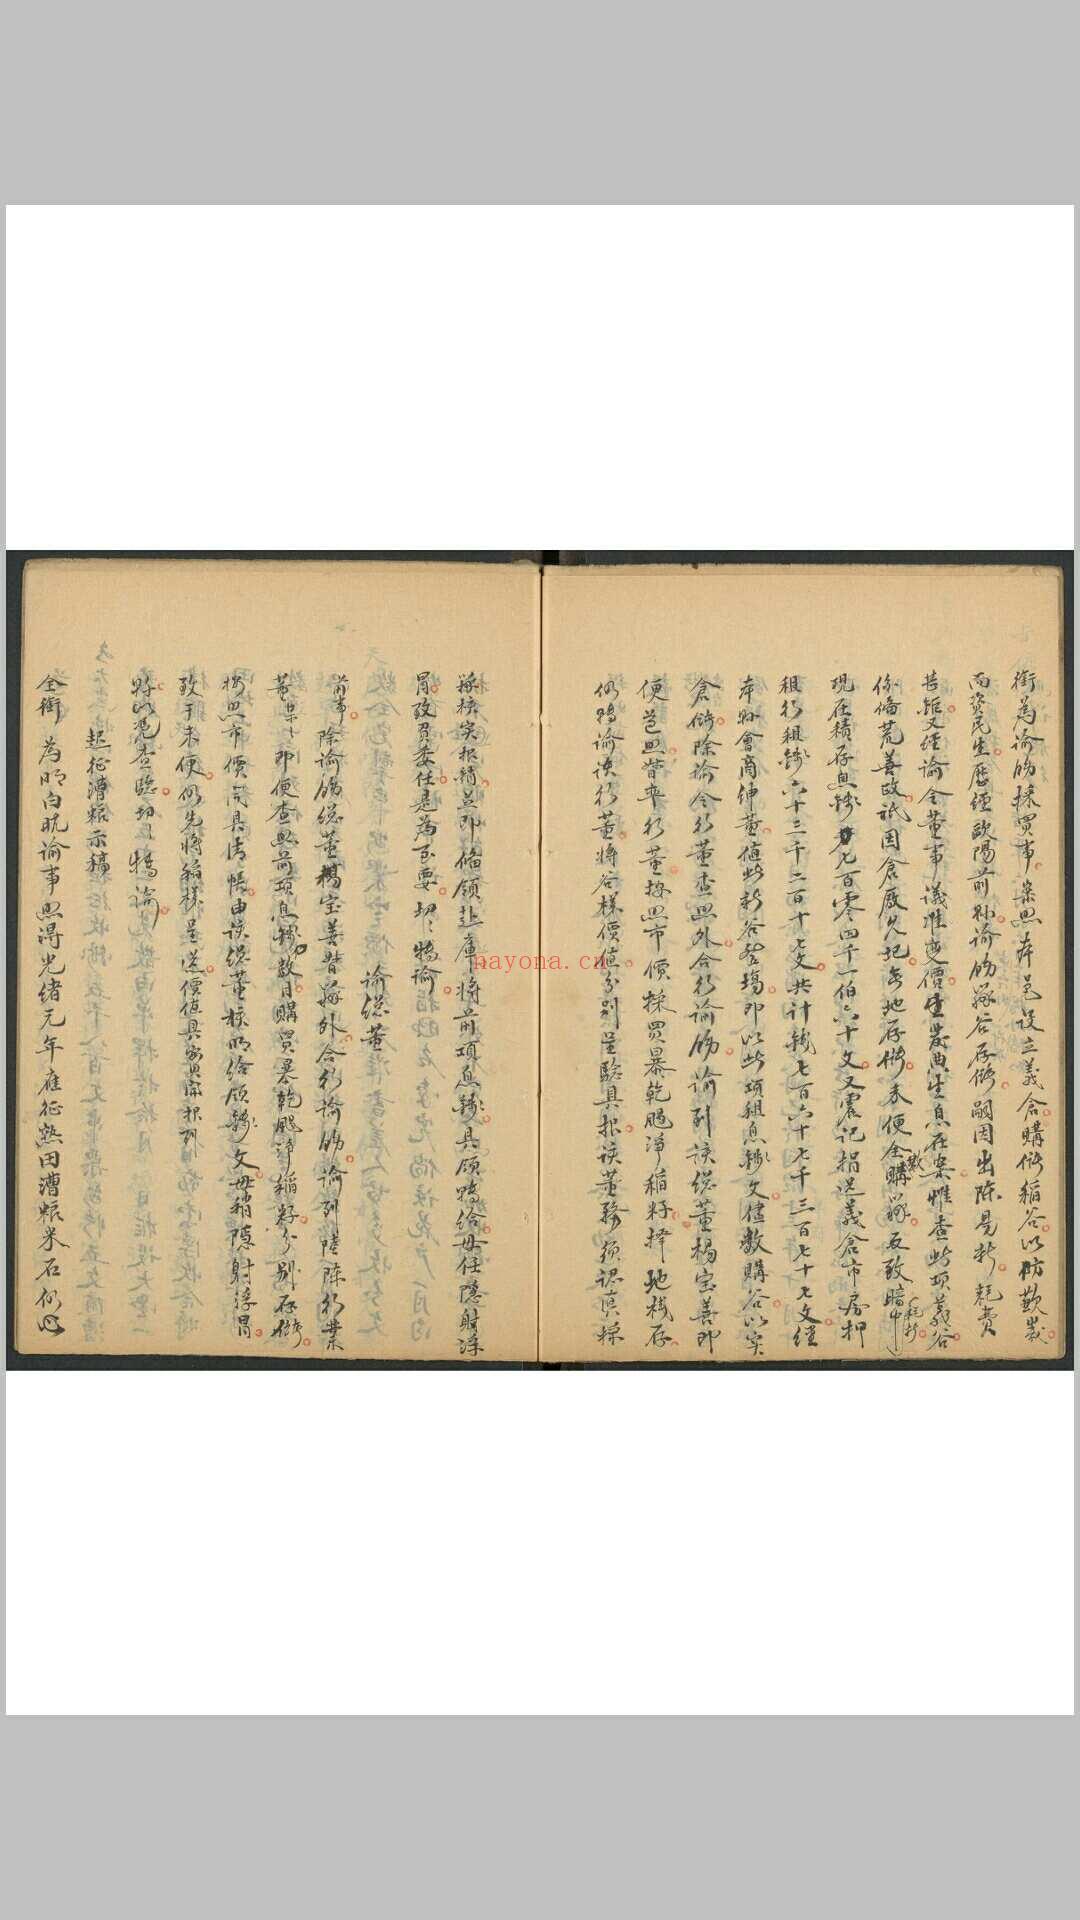 銜為諭飭採買事案照本邑設立義倉購儲稻谷以俻歉歲
而資民生歷經歐陽前縣諭飭採谷存儲嗣因出陳易新耗費
甚鉅又經諭令董事議准變價生息在案惟查此項義谷
係備荒善政祇因倉廒先圮無地存儲未便全購採反致暗中
耗折
現在積存息錢七百零四千一伯六十文又震記捐送義倉市房押
租行租錢六十三千二百十七文共計錢七百六十七千三百七十七文經
本縣會商紳董值此新谷登場即以此項租息錢文儘數購谷以实
倉儲除諭令行董查照外合行諭飭諭到該總董楊宝善即
便蓝照帶率行董按照市價採買暴乾颺淨稲籽擇地栈存
仍將諭该行董將谷樣價值分别呈驗具报该董務须認真採
採核实报销並即俻领赴庫將前項息錢具领转给毋任隐射浮
冒致負委任是為至要切、特諭
諭総董
前事除諭飭総董楊宝善督採外合行諭飭諭到陸陈行業
董某、即便查照前項息錢數目購買暴乾颺淨稲籽分别存儲
按照市價開具清帳由该総董核明给领錢文毋稍隐射浮冒
致于未便仍先將稲樣呈送價值具实開报到
縣以凴查驗切、特諭
起征漕粮示稿
全銜 為明白晓諭事照得光绪元年應征熟田漕粮米石仍